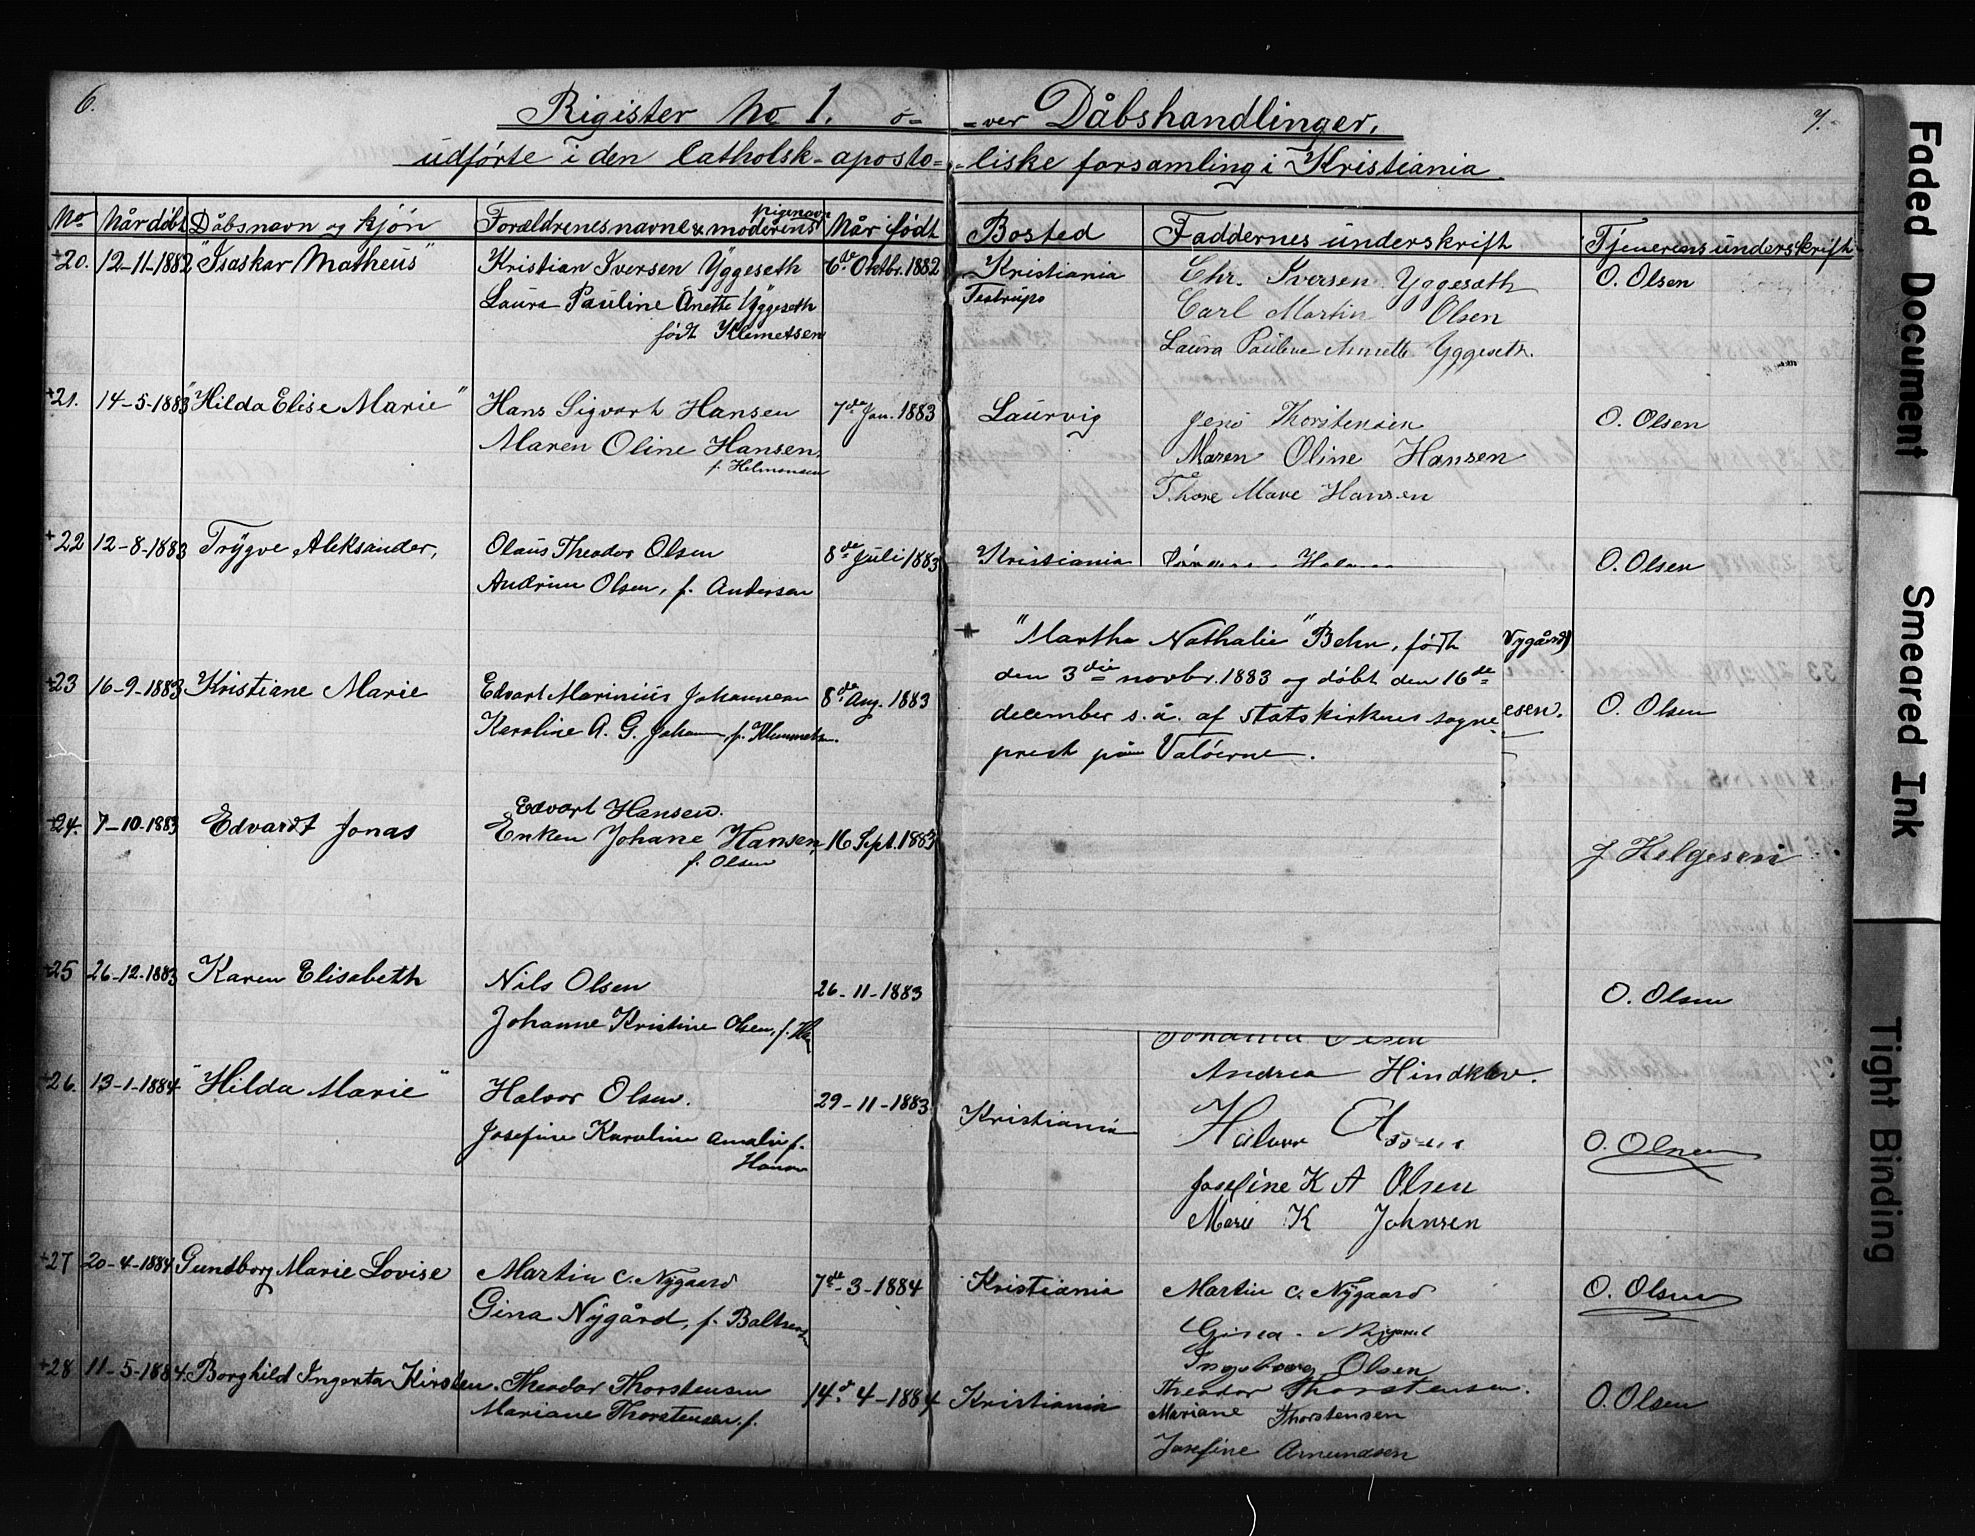 6.
Rigister No 1. o- -ver Dåbshandlinger.
7.
udførte i den Catholsk-aposto- -liske forsamling i Kristiania
No Når døbt Dåbsnavn og kjön Forældrenes navne & moderens pigenavn Når født Bosted Faddernes underskrift Tjenerens underskrift
+20. 12-11-1882 "Isaskar Matheus" Kristian Iversen Yggeseth 6de Oktbr. 1882 Kristiania Chr. Iversen Yggeseth O. Olsen
Laura Pauline Anette Yggeseth Carl Martin Olsen
født Klemetsen Laura Pauline Annette Yggeseth.
+21. 14-5-1883 "Hilda Elise Marie" Hans Sigvart Hansen 7de Jan. 1883 Laurvig Jens Thorstensen O. Olsen
Maren Oline Hansen Maren Oline Hansen
Thore Mare Hansen
+22 12-8-1883 Trÿgve Aleksander, Olaus Theodor Olsen 8de Juli 1883 Kristiania O. Olsen
Andrine Olsen, f. Andersen
+ "Martha Nathalie" Behn, født
den 3die novbr. 1883 og døbt den 16de
december s. å. af statskirkens sogne-
prest på Valöerne.
Nygård)
esen.
+23 16-9-1883 Kristiane Marie Edvart Marinius Johannesen 8de Aug. 1883 O. Olsen
Karoline A. G.
+24. 7-10-1883 Edvardt Jonas Edvart Hansen.
Enken Johane Hansen, 16 Sept. 1883 J Helgesen
f. Olsen
+25 26-12-1883 Karen Elisabeth Nils Olsen 26-11-1883 O. Olsen
Johanne Kristine Olsen, f.
Johanna Olsen
Andrea Hindklev.
+26. 13-1-1884 "Hilda Marie" Halvor Olsen. 29-11-1883 Kristiania Halvor O. Olsen
Josefine Karoline Amalie f. Josefine K A Olsen
Hansen Marie K Johnsen
+27 20-4-1884 Gundborg Marie Lovise Martin C. Nÿgaard 7de-3-1884 Kristiania Martin C. Nÿgaard O. Olsen
Gina Nÿgård, f. Gina Nÿgaard
Ingeborg Olsen
+28 11-5-1884. Borghild Ingerta Kirsten. Theodor Thorstensen 14d. 4-1884 Kristiania Theodor Thorstensen. O. Olsen
Mariane Thorstensen. f. Mariane Thorstensen
Josefine Amundsen
Faded Document
Smeared Ink
Tight Binding